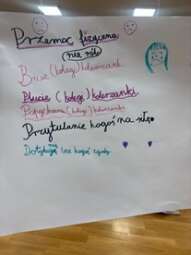 Przemoc fizyczna
nie rób
Bicie (kolegi) koleżanek
Plucie (kolegi) koleżanki
(kolegi) koleżanki
Przytulanie kogoś na siłę
Dotykanie bez kogoś zgody